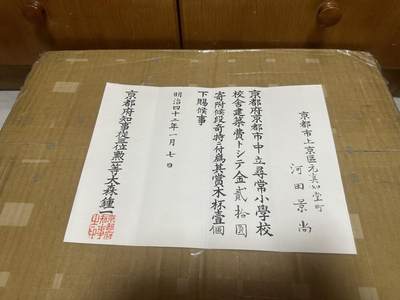 京都市上京區元真如堂町
河田景尚
京都府京都市中立尋常小學校
校舎建築費トシテ金貳拾圓
寄附候段奇特ニ付爲其賞木杯壹個
下賜候事
明治四十二年一月七日
京都府知事從三位勲一等大森鍾一